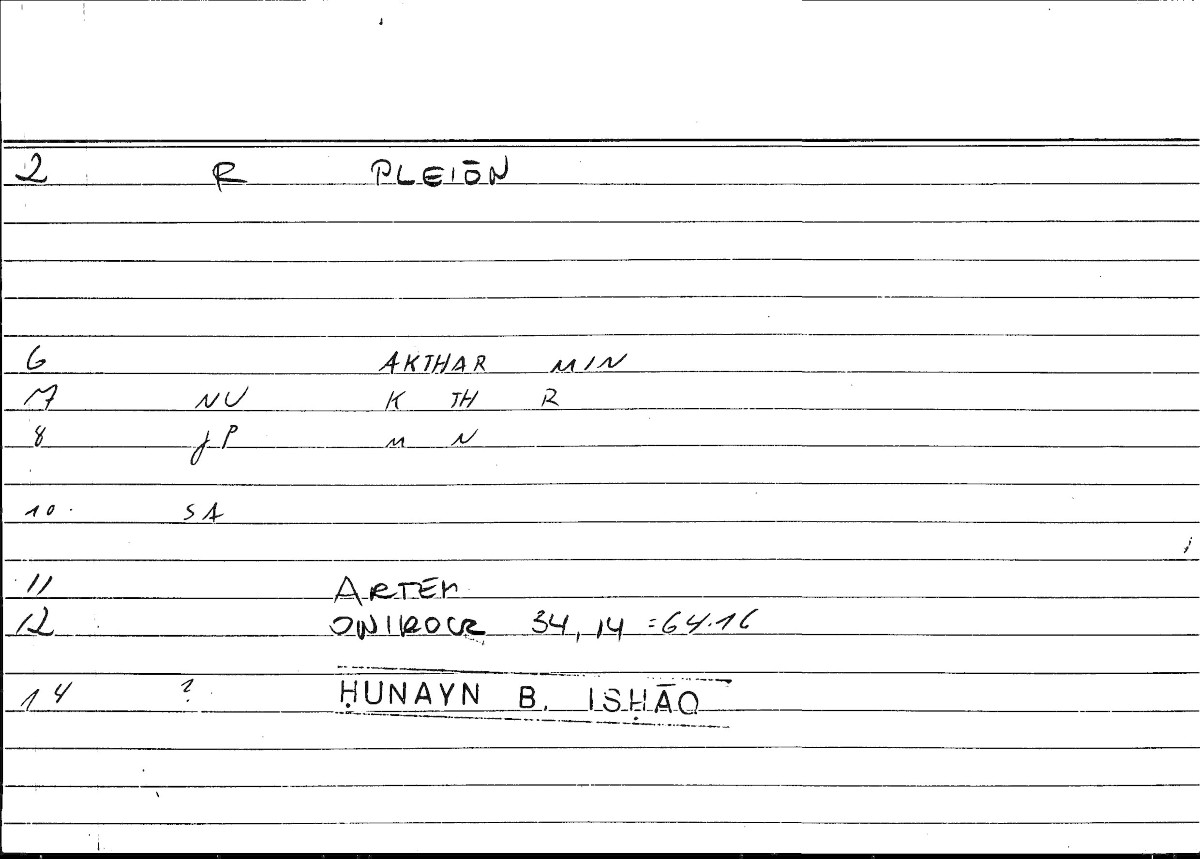 2 R PLEIŌN
6 AKTHAR MIN
7 NU K TH R
8 JP M N
10 SA
11 ARTEM
12 ONIROCR 34,14 = 64.16
14 ? ḤUNAYN B. ISḤĀQ